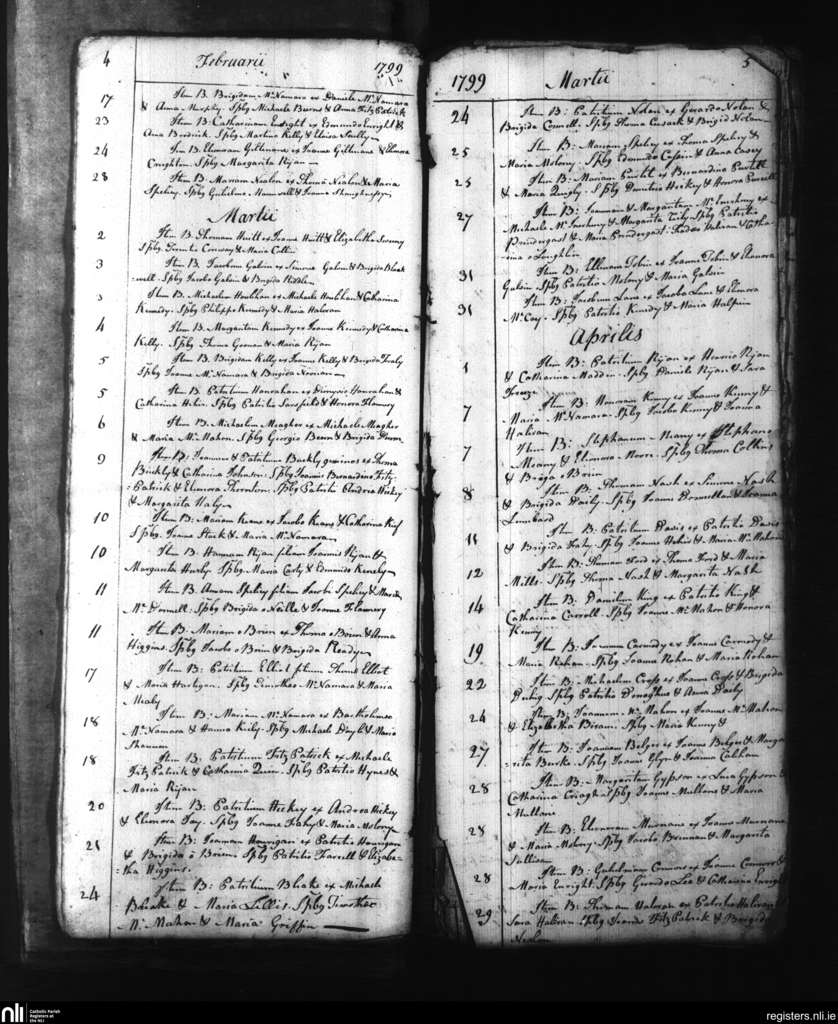 4 Februarii 1799
17 Item B. Brigidam McNamara ex Daniele McNamara
& Anna Murphy. Spbg Michaele Burns & Anna Fitz Patrick
23 Item B. Catharinam Enright ex Edmundo Enright &
Ana Spbg Martino Kelly & Scully
24 Item B. Elinoram Giltenane ex Joanne Giltenane & Elinora
Creighton Spbg Margarita Rijan
28 Item B. Mariam Nealon ex Thoma Nealon & Maria
Spelicy. Spbg Gulielmo & Joanne Shaughnessy
Martii
2 Item B. Thomam Huitt ex Joanne Huitt & Elizabetha
Spbg Conway & Maria Collin
3 Item B. Jacobum Galvin ex Simone Galvin & Brigida Black
well Spbg Jacobo Galvin & Brigida
3 Item B. Michaelem Houlihan ex Michaele Houlihan & Catharina
Kennedy. Spbg Philippo Kennedy & Maria Halvran
4 Item B. Margaritam Kennedy ex Joanne Kennedy & Catharina
Kelly. Spbg Thoma & Maria Rijan
5 Item B. Brigidam Kelly ex Joanne Kelly & Brigida
Spbg Joanne McNamara & Brigida
5 Item B. Patritium Hanrahan ex Dionysio Hanrahan &
Catharina Spbg Patritio Sarsfield & Honora
6 Item B. Michaelem Meagher ex Michaele Meagher
& Maria McMahon. Spbg Georgio & Brigida
9 Item B. Joannem & Patritium Buckly geminos ex Thoma
Buckly & Catharina Johnston. Spbg Joannis Bernardino Fitz
Patrick & Elenora Thornton. Spbg Patritii Andrea Hickey
& Margarita Haly
10 Item B. Mariam Keane ex Jacobo Keane & Catharina
Spbg. Joanne & Maria McNamara
10 Item B. Hannam Rijan filiam Joannis Rijan &
Margarita Spbg. Maria Carty & Edmundo
11 Item B. Annam Spelicy filiam Jacobi Spelicy & Maria
McDonnell. Spbg Brigida oNeille & Joanne
11 Item B. Mariam oBrien ex Thoma oBrien & Anna
Higgins. Spbg Jacobo oBrien & Brigida Ready
17 Item B: Patritium Elliot filium Thoma Elliot
& Maria Hartigan. Spbg Timotheo McNamara & Maria
Mealy
18 Item B. Mariam McNamara ex Bartholomeo
McNamara & Hanna Spbg Michaele & Maria
Shannon
18 Item B: Patritium Fitz Patrick ex Michaele
Fitz Patrick & Catharina Quin. Spbg Patritio Hynes &
Maria Rijan
20 Item B: Patritium Hickey ex Andrea Hickey
& Elenora Spbg Joanne & Maria Molony
21 Item B: Joannem Hourigan ex Patritio Hourigan
& Brigida o Brien Spbg Patritio Farrell & Elizabe
tha Higgins.
24 Item B: Patritium Blake ex Michaele
Blake & Maria Lillis. Spbg Timotheo
McMahon & Maria Griffin
1799 Martii 5
24 Item B: Patritium Nolan ex Gerardo Nolan &
Brigida Connell. Spbg Thoma Cusack & Brigid Nolan
25 Item B. Mariam Spelicy ex Thoma Spelicy &
Maria Molony. Spbg Edmundo & Anna Casey
25 Item B: Mariam ex Bernardino
& Maria Quigly. Spbg Hickey & Honora
27 Item B: Joannem & Margaritam McInerheny ex
Michaele McInerheny & Margarita Spbg Patritio
Prendergast & Maria Prendergast. Halvran & Catha
rina oLoughlin
31 Item B: Ellenam Tobin ex Joanne Tobin & Elenora
Galvin Spbg Patritio Molony & Maria Galvin
31 Item B: Jacobum Lane ex Jacobo Lane & Elenora
McCoy. Spbg Patritio Kennedy & Maria Halpin
Aprilis
1 Item B: Patritium Rijan ex Henrico Rijan
& Catharina Madden. Spbg Daniele Rijan & Sara
7 Item B: Honoram Kenny ex Joanne Kenny &
Maria McNamara. Spbg Jacobo Kenny & Joanna
Halvran
7 Item B: Stephanum Meany ex Stephano
Meany & Elenora Moore. Spbg Thoma Collins
& oBrien
8 Item B. Thomam Nash ex Simone Nash
& Brigida Daily. Spbg Joanne & Joanna
Lombard
11 Item B: Patritium Davis ex Patritio Davis
& Brigida Spbg Joanne & Maria McMahon
12 Item B: Thomam Ford ex Thoma Ford & Maria
Mills. Spbg Thoma Nash & Margarita Nash
14 Item B: Danielem King ex Patritio King &
Catharina Carroll. Spbg Joanne McMahon & Honora
Kenny
19 Item B. Joannem Carmody ex Joanne Carmody &
Maria Rohan. Spbg Joanne Rohan & Maria Rohan
22 Item B: Michaelem Cross ex Joanne Cross & Brigida
Spbg Patritio Donoghue & Anna Darby
24 Item B: Joannem McMahon ex Joanne McMahon
& Elizabetha Spbg Maria Kenny &
27 Item B: Joannem Belger ex Joanne Belger & Marga
rita Burke. Spbg Joanne & Joanna
28 Item B: Margaritam Gypson ex Gypson &
Catharina Spbg Joanne Mullane & Maria
Mullane
28 Item B: Elenoram Murnane ex Joanne Murnane
& Maria Molony Spbg Jacobo Brennan & Margarita
Sullivan
28 Item B: Gulielmum Connors ex Joanne Connors &
Maria Enright. Spbg Gerardo Lee & Catharina Enright
29 Item B: Thomam Halvran ex Patritio Halvran &
Sara Halvran Spbg Joanne Fitz Patrick & Brigida
Nealon
nli
Catholic Parish
Registers at
the NLI
registers.nli.ie